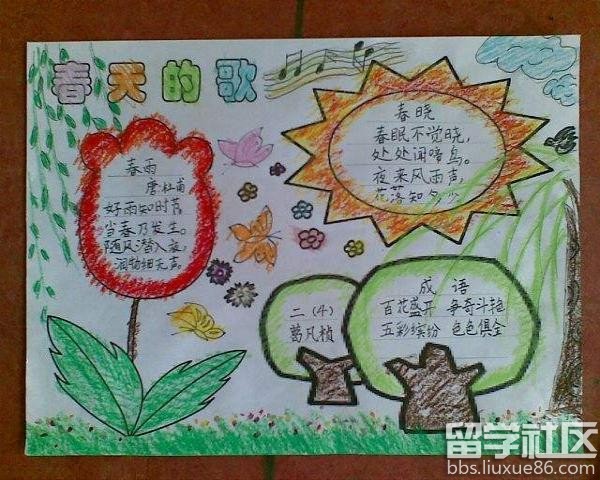 春天的歌
春雨
唐杜甫
好雨知时节,
当春乃发生。
随风潜入夜,
润物细无声。
春晓
春眠不觉晓,
处处闻啼鸟。
夜来风雨声,
花落知多少
二(4)
葛凤桢
成语
百花盛开 争奇斗艳
五彩缤纷 色色俱全
留学社区
bbs.liuxue86.com